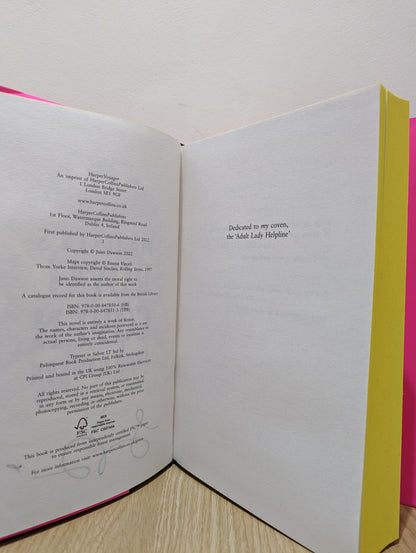 HarperVoyager
An imprint of HarperCollinsPublishers Ltd
1 London Bridge Street
London SE1 9GF
www.harpercollins.co.uk
HarperCollinsPublishers
1st Floor, Watermarque Building, Ringsend Road
Dublin 4, Ireland
First published by HarperCollinsPublishers Ltd 2022
Copyright © Juno Dawson 2022
Maps copyright © Emma Vieceli
Thom Yorke Interview, David Sinclair, Rolling Stone, 1997
Juno Dawson asserts the moral right to
be identified as the author of this work
A catalogue record for this book is available from the British Library
ISBN: 978-0-00-847850-6 (HB)
ISBN: 978-0-00-847851-3 (TPB)
This novel is entirely a work of fiction.
The names, characters and incidents portrayed in it are
the work of the author's imagination. Any resemblance to
actual persons, living or dead, events or localities is
entirely coincidental.
Typeset in Sabon LT Std by
Palimpsest Book Production Ltd, Falkirk, Stirlingshire
Printed and bound in the UK using 100% Renewable Electricity
at CPI Group (UK) Ltd
All rights reserved. No part of this publication may be
reproduced, stored in a retrieval system, or transmitted,
in any form or by any means, electronic, mechanical,
photocopying, recording or otherwise, without the prior
permission of the publishers.
MIX
Paper from
responsible sources
FSC
FSC™ C007454
This book is produced from independently certified FSC™ paper
to ensure responsible forest management.
For more information visit: www.harpercollins.co.uk/green
Dedicated to my coven,
the 'Adult Lady Helpline'